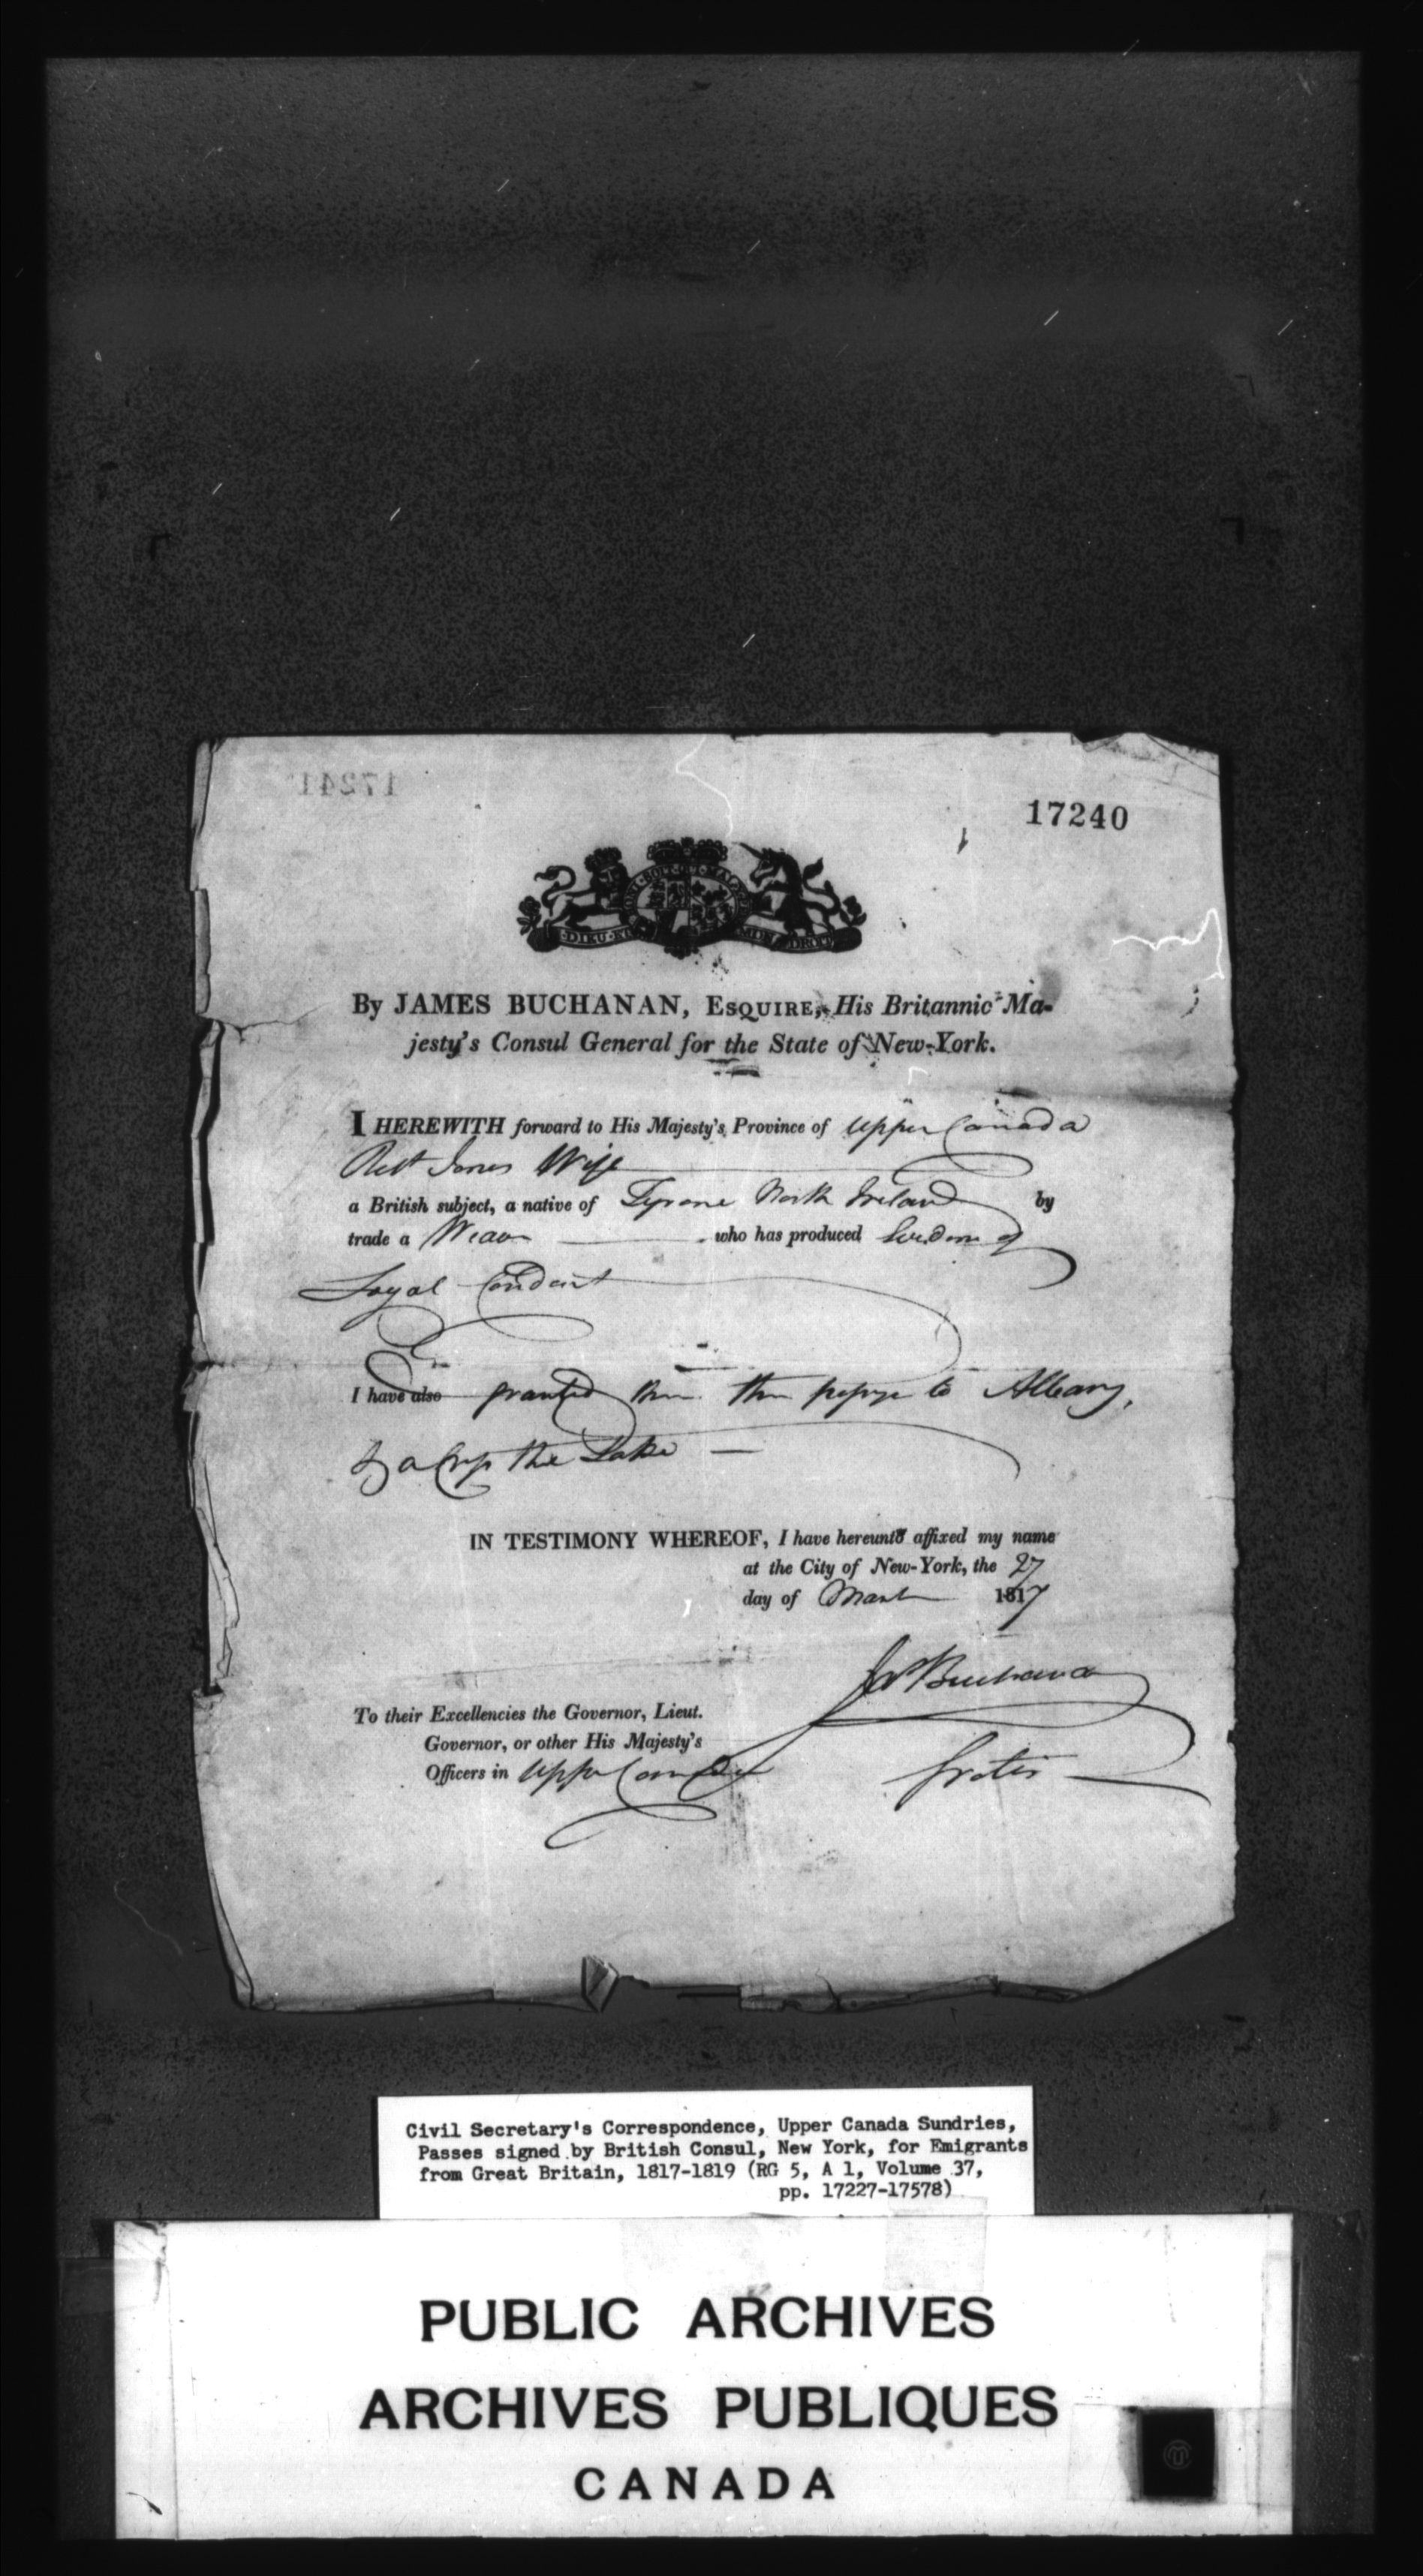 17241
17240
DIEU ET MON DROIT
By JAMES BUCHANAN, ESQUIRE, His Britannic Ma-
jesty's Consul General for the State of New-York.
I HEREWITH forward to His Majesty's Province of Upper Canada
Robt Jones Wife
a British subject, a native of Tyrone North Ireland by
trade a Weaver who has produced Evidence of
Loyal Conduct
I have also granted them their passage to Albany,
& across the Lake —
IN TESTIMONY WHEREOF, I have hereunto affixed my name
at the City of New-York, the 27
day of March 1817
Jas Buchanan
To their Excellencies the Governor, Lieut.
Governor, or other His Majesty's
Officers in Upper Canada
Gratis
Civil Secretary's Correspondence, Upper Canada Sundries,
Passes signed by British Consul, New York, for Emigrants
from Great Britain, 1817-1819 (RG 5, A 1, Volume 37,
pp. 17227-17578)
PUBLIC ARCHIVES
ARCHIVES PUBLIQUES
CANADA